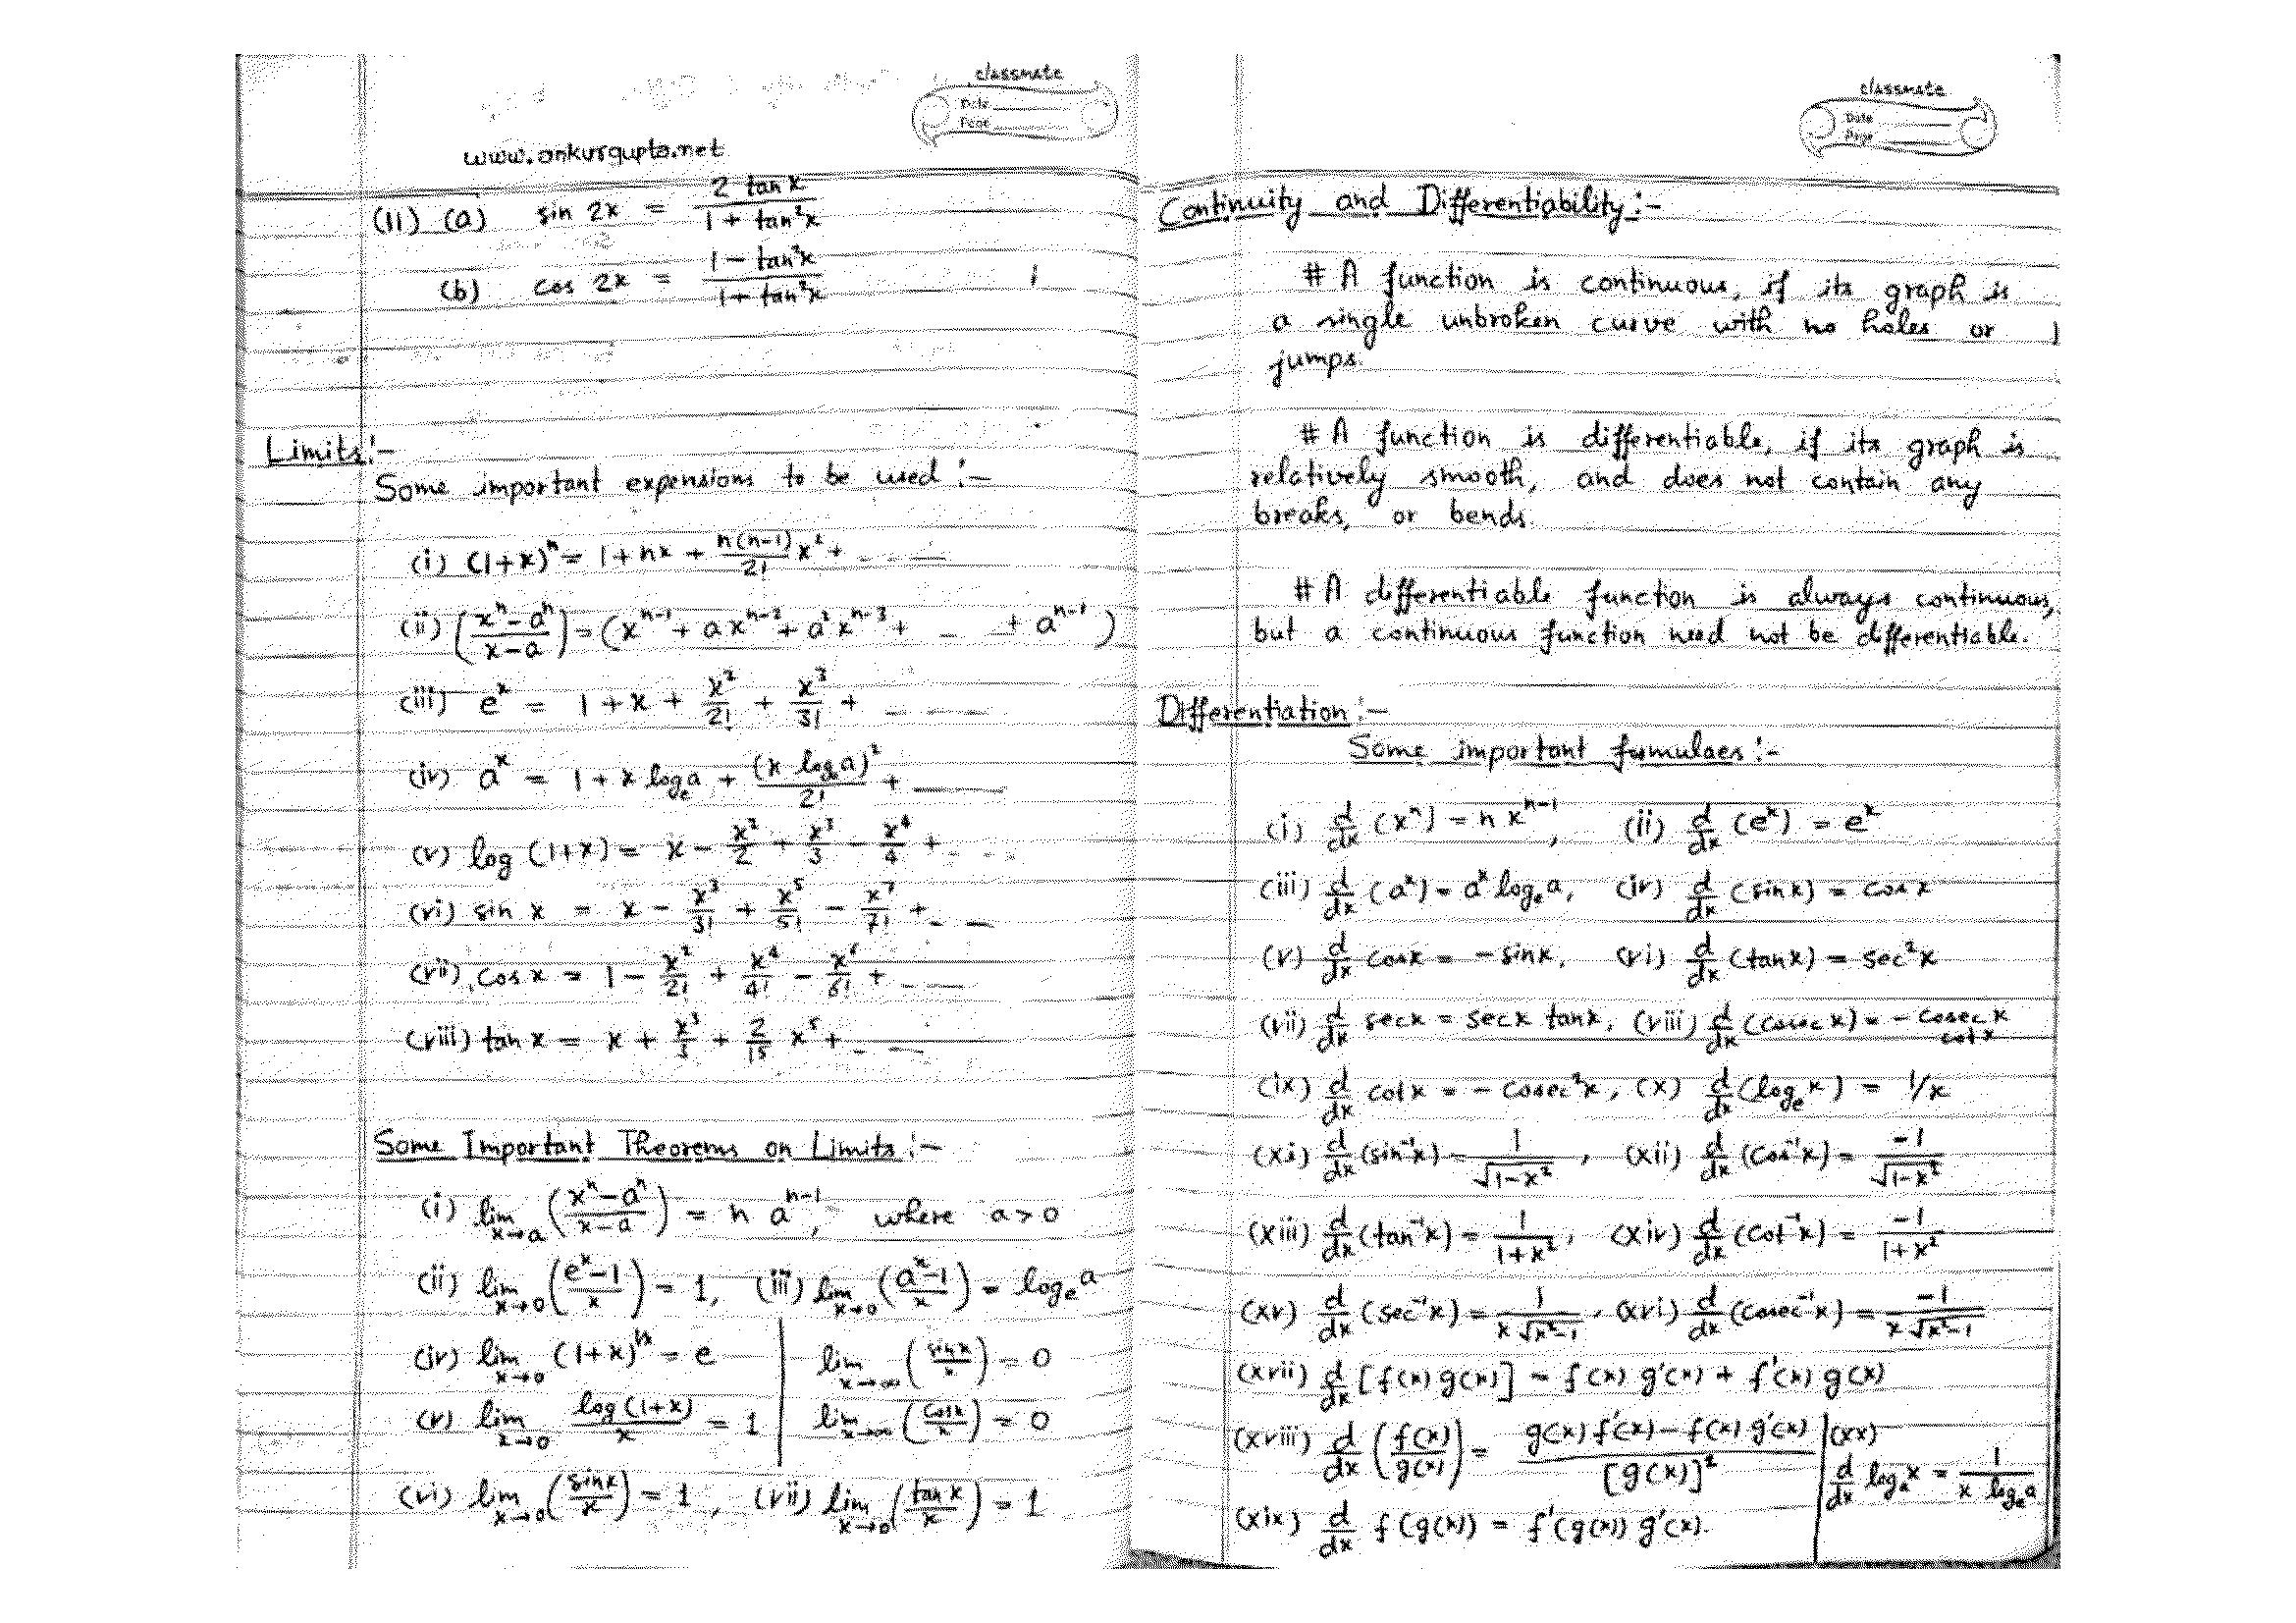 classmate
Date
Page
www.ankurgupta.net
(11) (a) sin 2x = 2 tan x / 1 + tan²x
(b) cos 2x = 1 - tan²x / 1 + tan²x
Limits:-
Some important expensions to be used:-
(i) (1+x)ⁿ = 1 + nx + n(n-1)/2! x² + - - - -
(ii) (xⁿ - aⁿ / x - a) = (xⁿ⁻¹ + axⁿ⁻² + a²xⁿ⁻³ + - - + aⁿ⁻¹)
(iii) eˣ = 1 + x + x²/2! + x³/3! + - - - -
(iv) aˣ = 1 + x logₑa + (x logₑa)²/2! + - - - -
(v) log (1+x) = x - x²/2 + x³/3 - x⁴/4 + - - -
(vi) sin x = x - x³/3! + x⁵/5! - x⁷/7! + - - -
(vii) cos x = 1 - x²/2! + x⁴/4! - x⁶/6! + - - - -
(viii) tan x = x + x³/3 + 2/15 x⁵ + - - - -
Some Important Theorems on Limits:-
(i) lim x→a (xⁿ - aⁿ / x - a) = n aⁿ⁻¹, where a > 0
(ii) lim x→0 (eˣ - 1 / x) = 1, (iii) lim x→0 (aˣ - 1 / x) = logₑa
(iv) lim x→0 (1+x)^1/x = e | lim x→∞ (sin x / x) = 0
(v) lim x→0 log (1+x) / x = 1 | lim x→∞ (cos x / x) = 0
(vi) lim x→0 (sin x / x) = 1, (vii) lim x→0 (tan x / x) = 1
classmate
Date
Page
Continuity and Differentiability:-
# A function is continuous, if its graph is
a single unbroken curve with no holes or
jumps.
# A function is differentiable, if its graph is
relatively smooth, and does not contain any
breaks, or bends.
# A differentiable function is always continuous,
but a continuous function need not be differentiable.
Differentiation:-
Some important fumulaes:-
(i) d/dx (xⁿ) = n xⁿ⁻¹, (ii) d/dx (eˣ) = eˣ
(iii) d/dx (aˣ) = aˣ logₑa, (iv) d/dx (sin x) = cos x
(v) d/dx cos x = - sin x, (vi) d/dx (tan x) = sec²x
(vii) d/dx sec x = sec x tan x, (viii) d/dx (cosec x) = - cosec x cot x
(ix) d/dx cot x = - cosec²x, (x) d/dx (logₑx) = 1/x
(xi) d/dx (sin⁻¹x) = 1/√1-x², (xii) d/dx (cos⁻¹x) = -1/√1-x²
(xiii) d/dx (tan⁻¹x) = 1/1+x², (xiv) d/dx (cot⁻¹x) = -1/1+x²
(xv) d/dx (sec⁻¹x) = 1/x√x²-1, (xvi) d/dx (cosec⁻¹x) = -1/x√x²-1
(xvii) d/dx [f(x) g(x)] = f(x) g'(x) + f'(x) g(x)
(xviii) d/dx (f(x)/g(x)) = g(x) f'(x) - f(x) g'(x) / [g(x)]²
(xx) d/dx logₐx = 1 / x logₑa
(xix) d/dx f(g(x)) = f'(g(x)) g'(x).